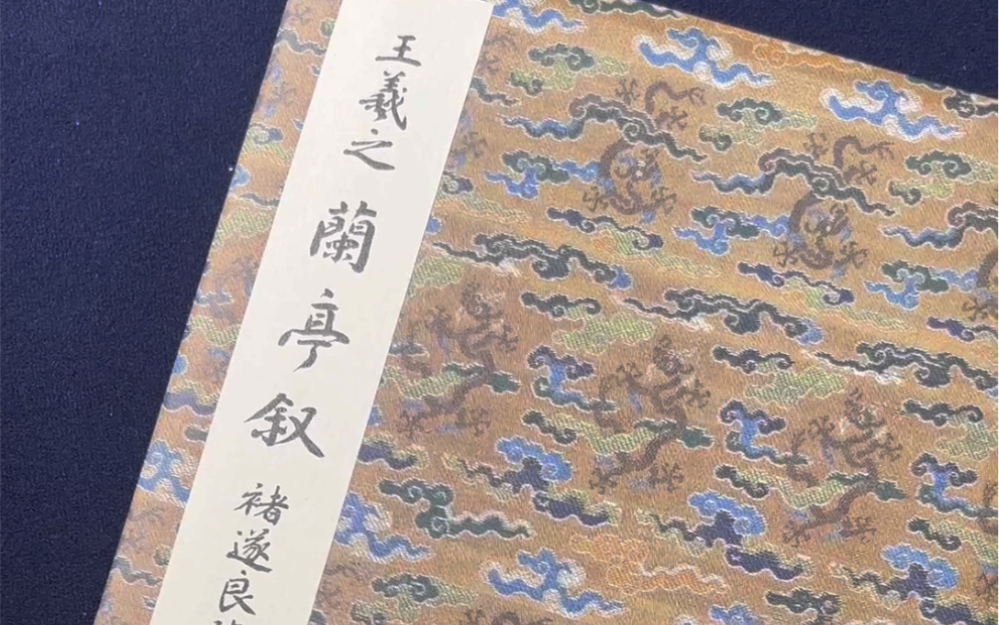 王羲之 蘭亭叙 褚遂良